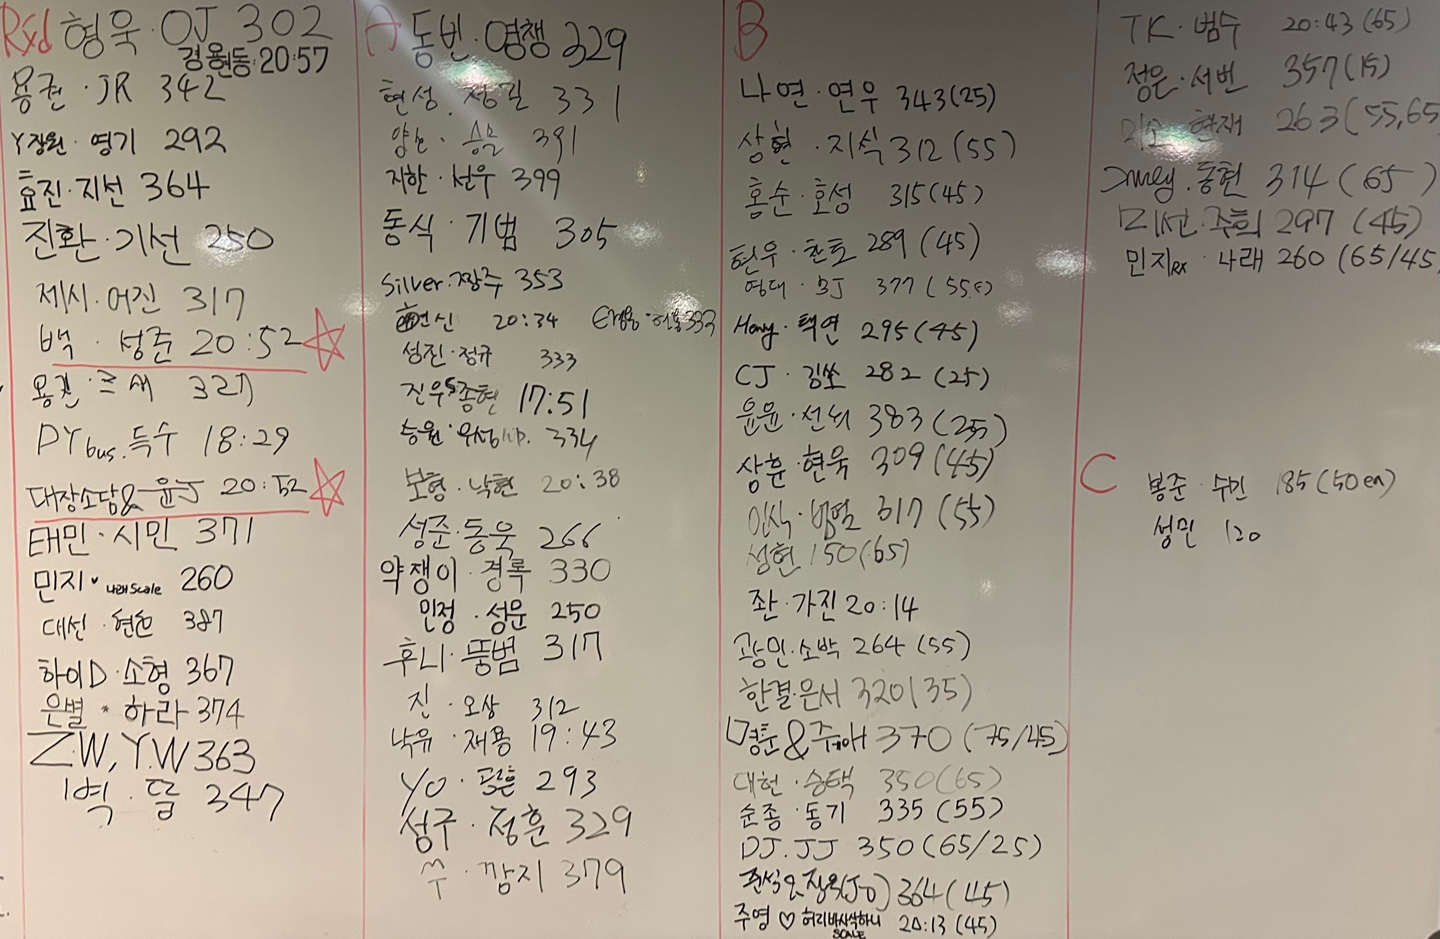 Rxd 형욱·OJ 302
경용원동·20:57
용권·JR 342
Y장원·영기 292
효진·지선 364
진환·기선 250
제시·어진 317
백·성준 20:52
용권· 327
DY bus.특수 18:29
대장소담&윤J 20:52
태민·시민 371
민지·나래scale 260
대선·현호 387
하이D·소형 367
은별*하라 374
Z.W, Y.W 363
벽·달 347
A 동빈·영챙 329
현성·창길 331
391
지한·선우 399
동식·기범 305
Silver·짱주 353
현신 20:34 332
성진·정규 333
진우&종현 17:51
승원·우성 334
보형·낙현 20:38
성준·동욱 266
약쟁이·경록 330
민정·성문 250
후니·뚱범 317
진·오상 312
낙유·재용 19:43
YO· 293
성구·정훈 329
깜지 379
B
나연·연우 343(25)
상현·지식 312(55)
홍순·호성 315(45)
현우· 289(45)
영대· 377
택연 295(45)
CJ·김쏘 282(25)
윤윤·선뇌 383(25)
상훈·현욱 309(45)
인식·범열 317(55)
성현 150(65)
좐·가진 20:14
광민·소박 264(55)
한결·은서 320(35)
370(75/45)
대헌·승택 350(65)
순종·동기 335(55)
DJ.JJ 350(65/25)
364(45)
주영♡허리바사삭하니 SCALE 20:13(45)
TK·범수 20:43(65)
정은·서번 357(15)
미소·현재 263(55,65
동현 314(65)
미선·주희 297(45)
민지RX·나래 260(65/45
C 봉준·수민 185(50en)
성민 120